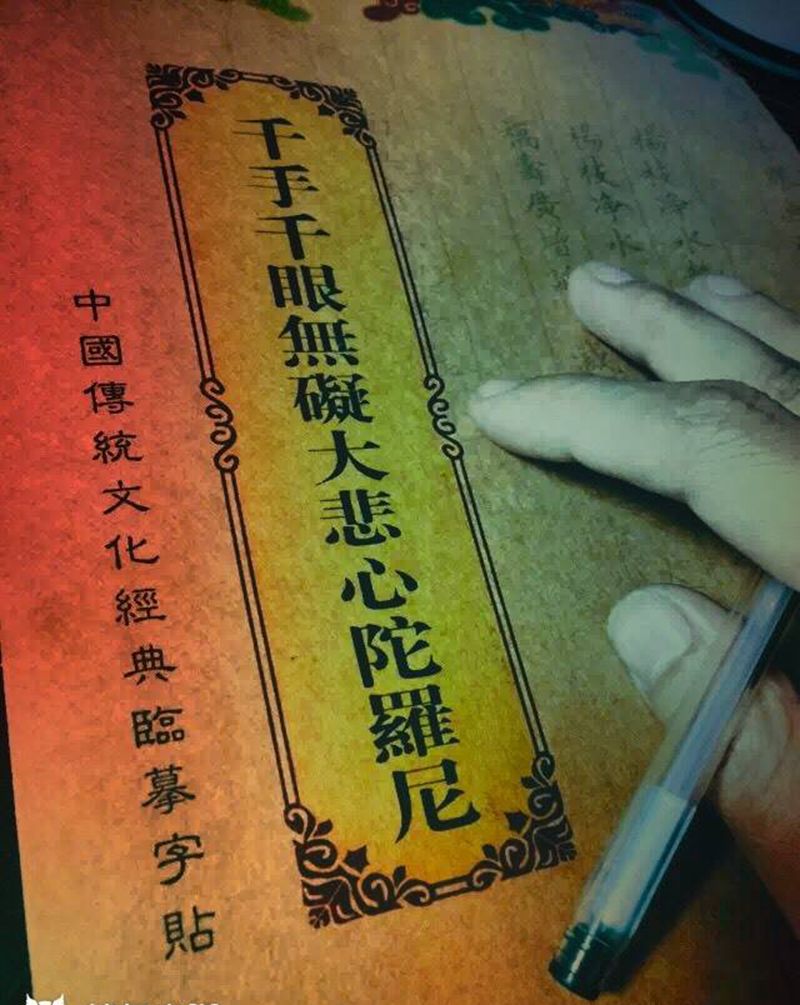 千手千眼無礙大悲心陀羅尼
中國傳統文化經典臨摹字貼
楊枝淨水
楊枝淨水
萬壽